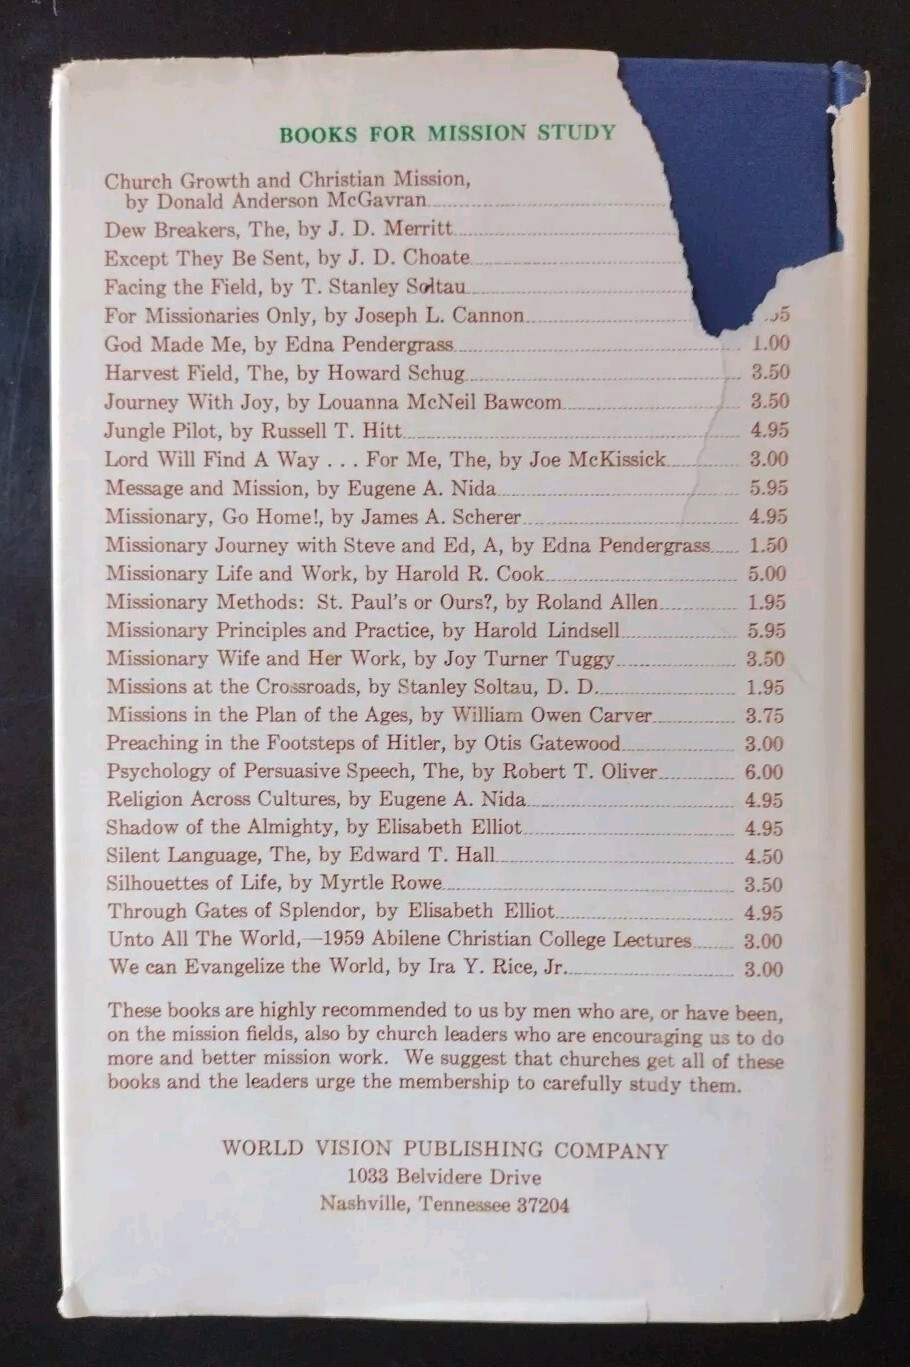 BOOKS FOR MISSION STUDY
Church Growth and Christian Mission,
by Donald Anderson McGavran
Dew Breakers, The, by J. D. Merritt
Except They Be Sent, by J. D. Choate
Facing the Field, by T. Stanley Soltau
For Missionaries Only, by Joseph L. Cannon
God Made Me, by Edna Pendergrass 1.00
Harvest Field, The, by Howard Schug 3.50
Journey With Joy, by Louanna McNeil Bawcom 3.50
Jungle Pilot, by Russell T. Hitt 4.95
Lord Will Find A Way . . . For Me, The, by Joe McKissick 3.00
Message and Mission, by Eugene A. Nida 5.95
Missionary, Go Home!, by James A. Scherer 4.95
Missionary Journey with Steve and Ed, A, by Edna Pendergrass 1.50
Missionary Life and Work, by Harold R. Cook 5.00
Missionary Methods: St. Paul's or Ours?, by Roland Allen 1.95
Missionary Principles and Practice, by Harold Lindsell 5.95
Missionary Wife and Her Work, by Joy Turner Tuggy 3.50
Missions at the Crossroads, by Stanley Soltau, D. D. 1.95
Missions in the Plan of the Ages, by William Owen Carver 3.75
Preaching in the Footsteps of Hitler, by Otis Gatewood 3.00
Psychology of Persuasive Speech, The, by Robert T. Oliver 6.00
Religion Across Cultures, by Eugene A. Nida 4.95
Shadow of the Almighty, by Elisabeth Elliot 4.95
Silent Language, The, by Edward T. Hall 4.50
Silhouettes of Life, by Myrtle Rowe 3.50
Through Gates of Splendor, by Elisabeth Elliot 4.95
Unto All The World,—1959 Abilene Christian College Lectures 3.00
We can Evangelize the World, by Ira Y. Rice, Jr. 3.00
These books are highly recommended to us by men who are, or have been,
on the mission fields, also by church leaders who are encouraging us to do
more and better mission work. We suggest that churches get all of these
books and the leaders urge the membership to carefully study them.
WORLD VISION PUBLISHING COMPANY
1033 Belvidere Drive
Nashville, Tennessee 37204